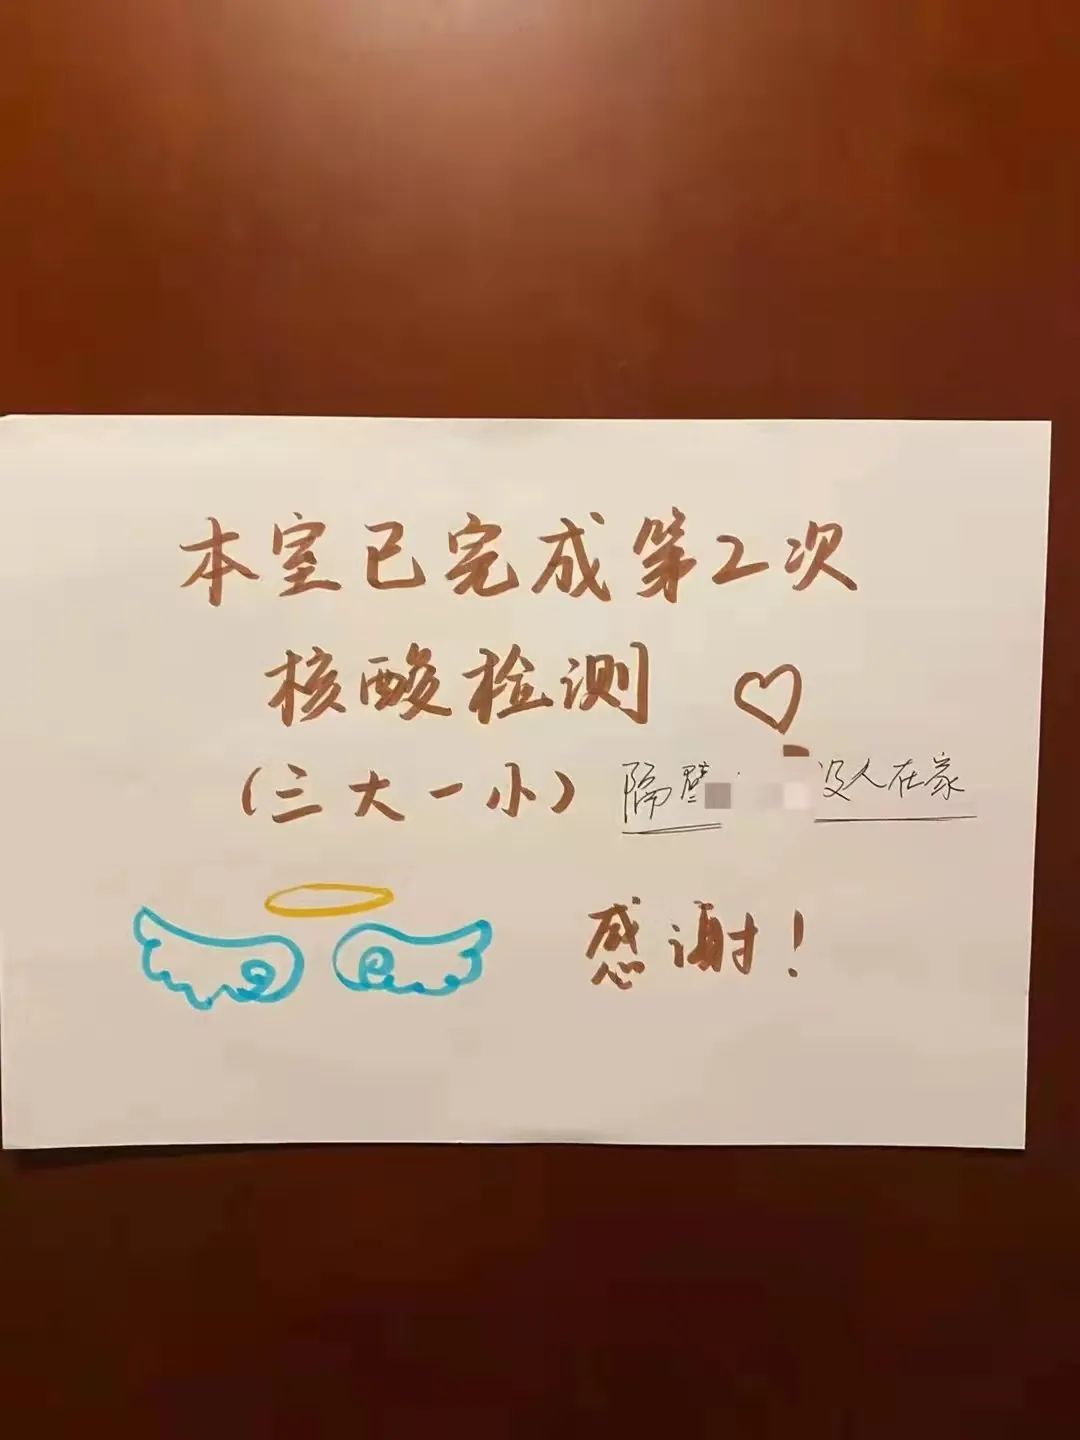 本室已完成第2次
核酸检测
(三大一小) 隔壁 没人在家
感谢!